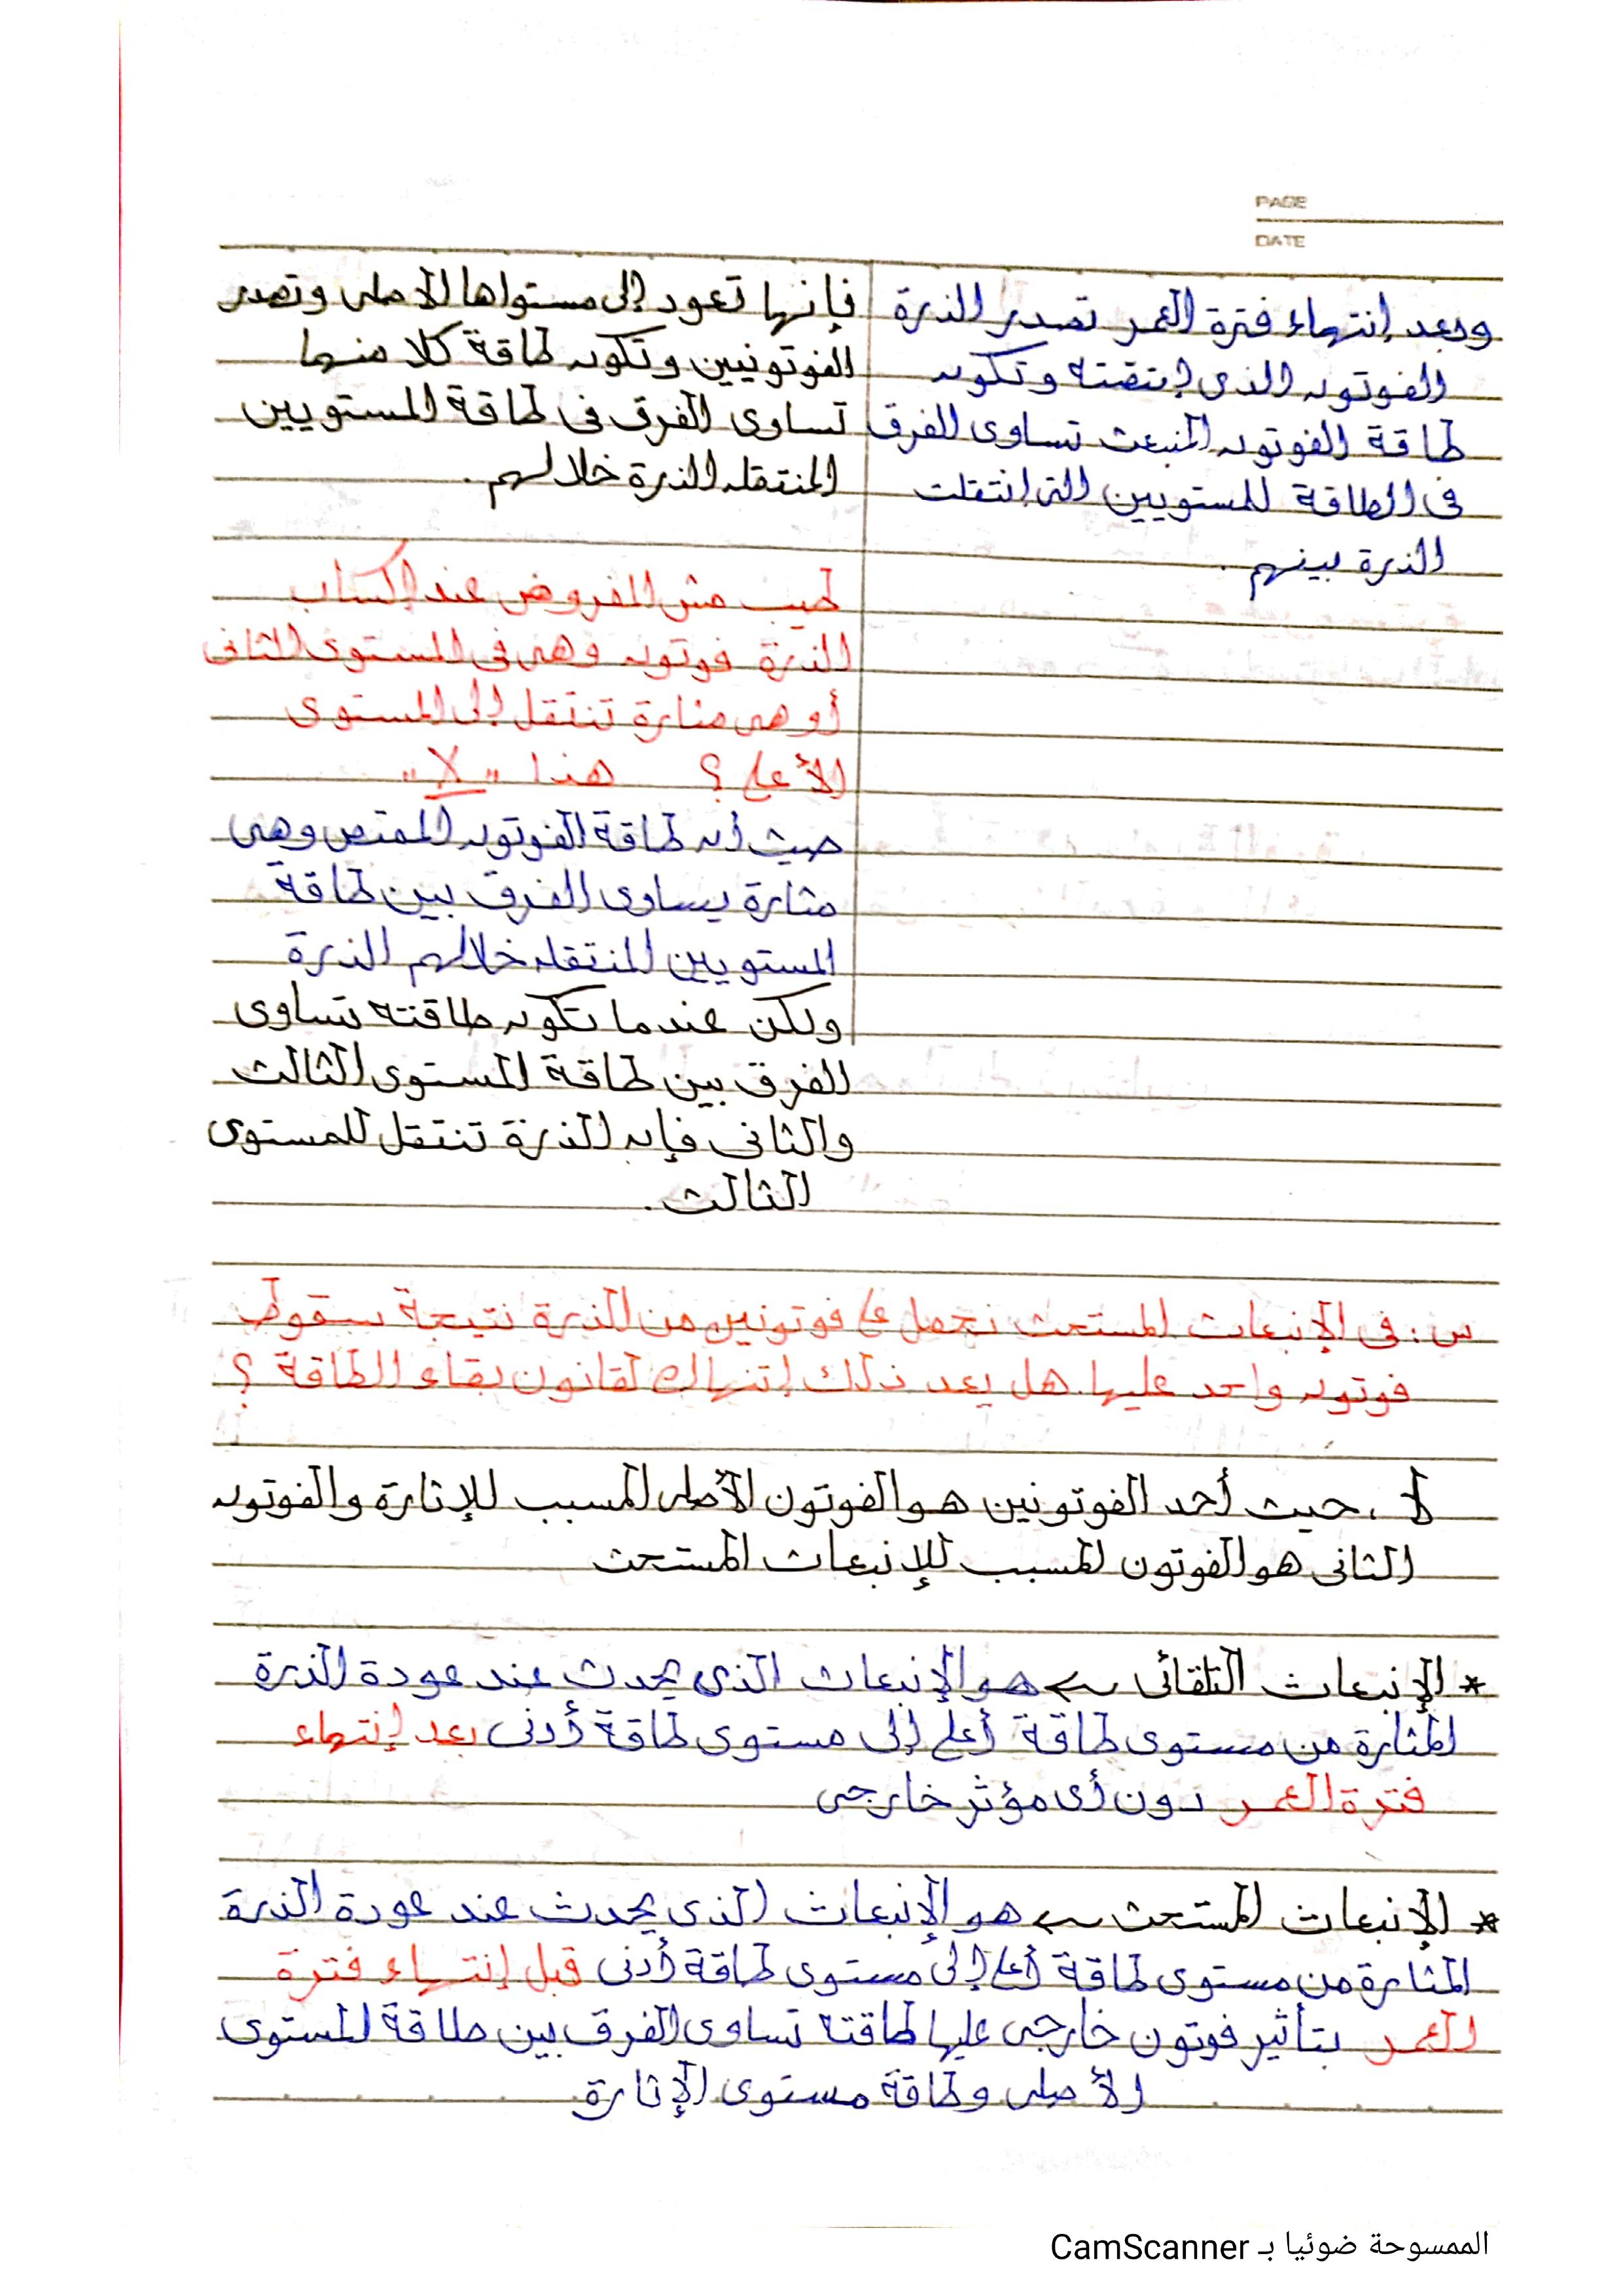 PAGE
DATE
وبعد إنتهاء فترة العمر تصدر الذرة
الفوتون الذى إمتصته وتكون
طاقة الفوتون المنبعث تساوى الفرق
فى الطاقة للمستويين التى إنتقلت
الذرة بينهم.
فإنها تعود إلى مستواها الأصلى وتصدر
الفوتونيين وتكون طاقة كلا منهما
تساوى الفرق فى طاقة المستويين
المنتقله الذرة خلالهم.
طيب مش المفروض عند إكساب
الذرة فوتون وهى فى المستوى الثانى
أو هى مثارة تنتقل إلى المستوى
الأعلى؟ هذا "لا"
حيث أن طاقة الفوتون الممتص وهى
مثارة يساوى الفرق بين طاقة
المستويين المنتقله خلالهم الذرة
ولكن عندما تكون طاقته تساوى
الفرق بين طاقة المستوى الثالث
والثانى فإن الذرة تنتقل للمستوى
الثالث.
س: فى الإنبعاث المستحث نحصل على فوتونين من الذرة نتيجة سقوط
فوتون واحد عليها. هل يعد ذلك إنتهاك لقانون بقاء الطاقة ؟
لا، حيث أحد الفوتونين هو الفوتون الأصلى المسبب للإثارة والفوتون
الثانى هو الفوتون المسبب للإنبعاث المستحث
* الإنبعاث التلقائى ← هو الإنبعاث الذى يحدث عند عودة الذرة
المثارة من مستوى طاقة أعلى إلى مستوى طاقة أدنى بعد إنتهاء
فترة العمر دون أى مؤثر خارجى
* الإنبعاث المستحث ← هو الإنبعاث الذى يحدث عند عودة الذرة
المثارة من مستوى طاقة أعلى إلى مستوى طاقة أدنى قبل إنتهاء فترة
العمر بتأثير فوتون خارجى عليها طاقته تساوى الفرق بين طاقة المستوى
الأصلى وطاقة مستوى الإثارة
الممسوحة ضوئيا بـ CamScanner